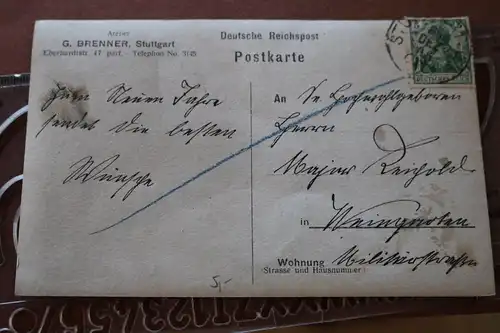 Atelier
G. BRENNER, Stuttgart
Eberhardstr. 47 part. - Telephon No.
Deutsche Reichspost
Postkarte
Zum Neuen Jahre
sendet die besten
Wünsche
An Sr. Hochwohlgeboren
Herrn
Major Reihold
in Weingarten
Wohnung Militärstraße
(Strasse und Hausnummer)
5,-
DEUTSCHES REICH